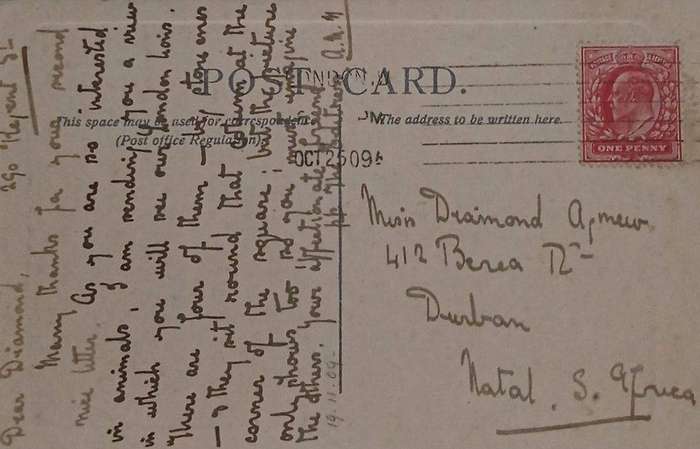 POST CARD.
This space may be used for correspondence
(Post office Regulation).
The address to be written here.
OCT 25 09
ONE PENNY
Miss Diamond Agnew.
412 Berea Rd
Durban
Natal. S. Africa
Regent St
Dear Diamond,
Many thanks for your second
nice letter. As you are so interested
in animals, I am sending you a view
in which you will see our London lions.
There are four of them — big stone ones
— & they sit round that column at the
corner of the square; but the picture
only shows two so you must imagine
the others. Your affectionate friend,
pp The Editress.
19.11.09.